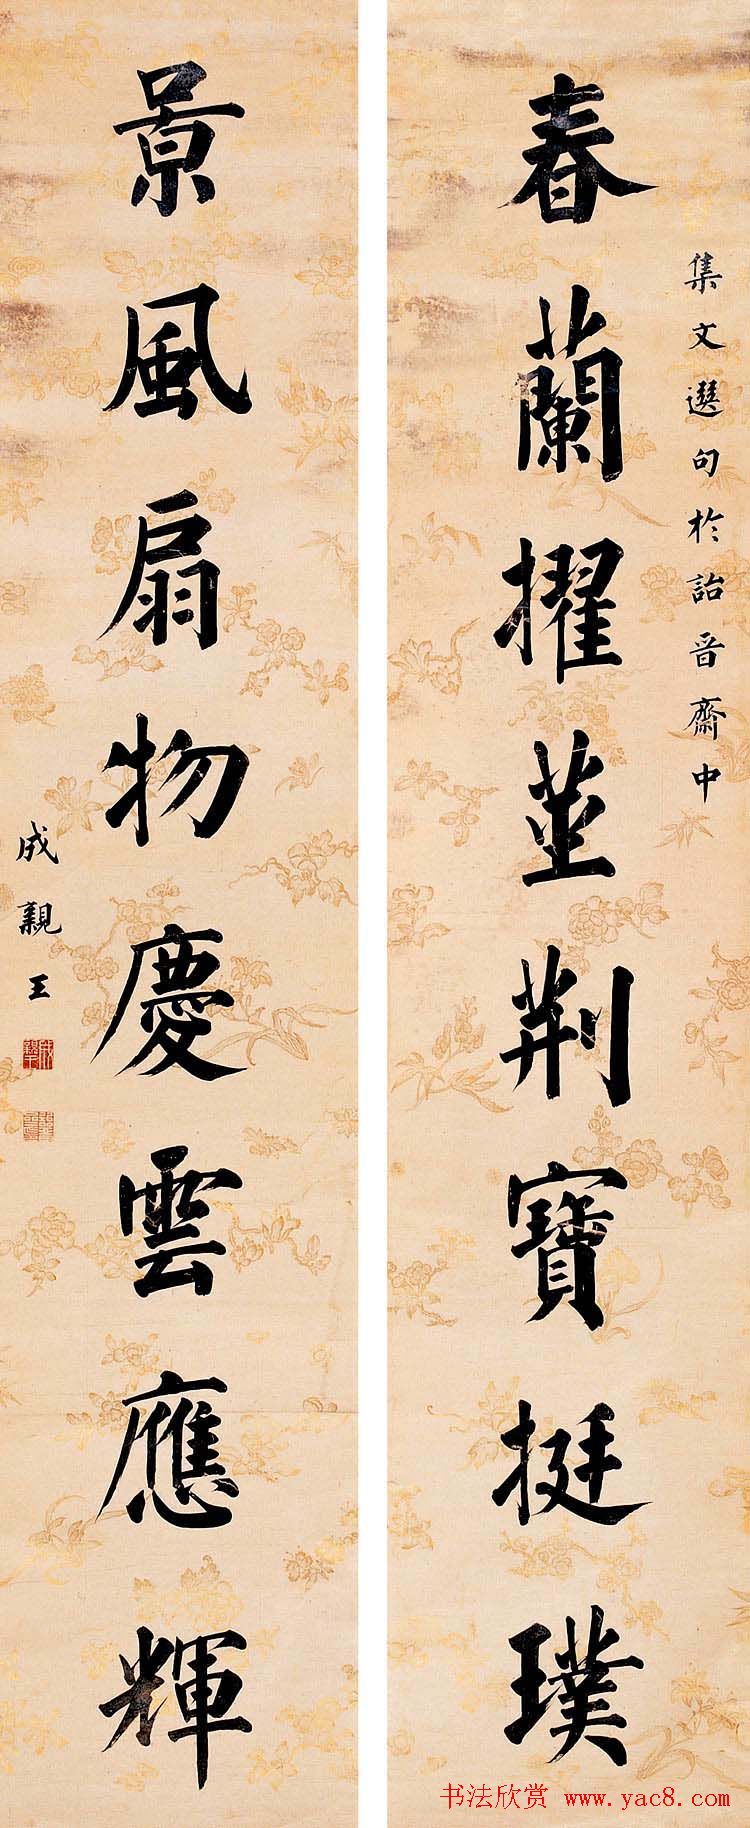 集文選句於詒晋齋中
春蘭擢莖荊寶挺璞
景風扇物慶雲應輝
成親王
书法欣赏 www.yac8.com